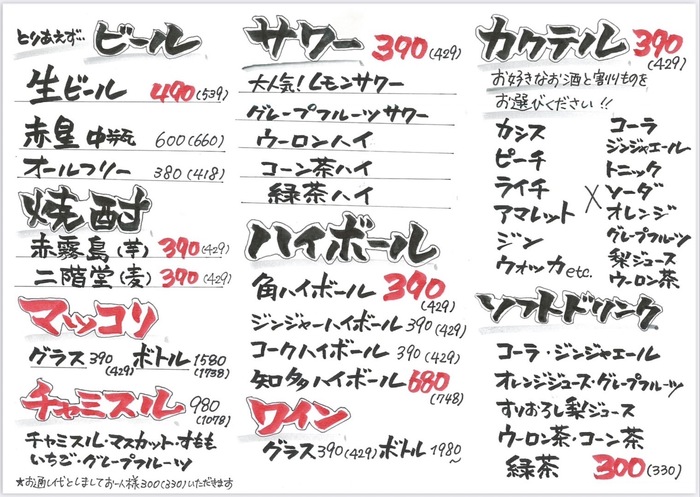 とりあえず… ビール
生ビール 490(539)
赤星 中瓶 600(660)
オールフリー 380(418)
焼酎
赤霧島(芋) 390(429)
二階堂(麦) 390(429)
マッコリ
グラス 390(429) ボトル 1580(1738)
チャミスル 980(1078)
チャミスル・マスカット・すもも
いちご・グレープフルーツ
★お通し代としましてお一人様300(330)いただきます
サワー 390(429)
大人気!レモンサワー
グレープフルーツサワー
ウーロンハイ
コーン茶ハイ
緑茶ハイ
ハイボール
角ハイボール 390(429)
ジンジャーハイボール 390(429)
コークハイボール 390(429)
知多ハイボール 680(748)
ワイン
グラス390(429) ボトル 1980~
カクテル 390(429)
お好きなお酒と割りものを
お選びください!!
カシス
ピーチ
ライチ
アマレット
ジン
ウォッカetc.
×
コーラ
ジンジャエール
トニック
ソーダ
オレンジ
グレープフルーツ
梨ジュース
ウーロン茶
ソフトドリンク
コーラ・ジンジャエール
オレンジジュース・グレープフルーツ
すりおろし梨ジュース
ウーロン茶・コーン茶
緑茶 300(330)